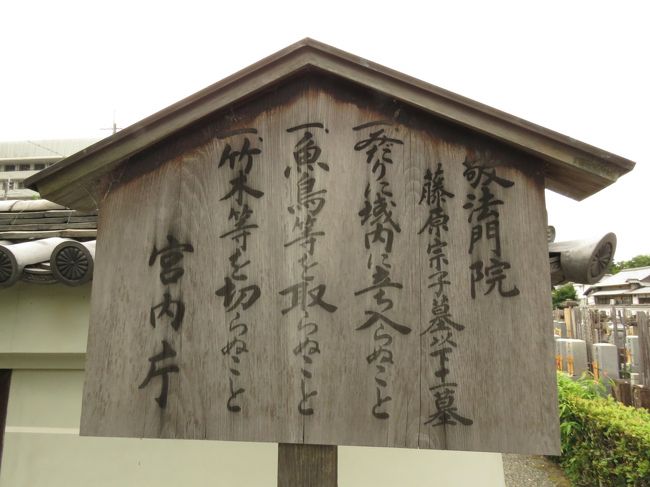 敬法門院
藤原宗子墓以下十一墓
一、発りに域内に立ち入らぬこと
一、魚鳥等を取らぬこと
一、竹木等を切らぬこと
宮内庁